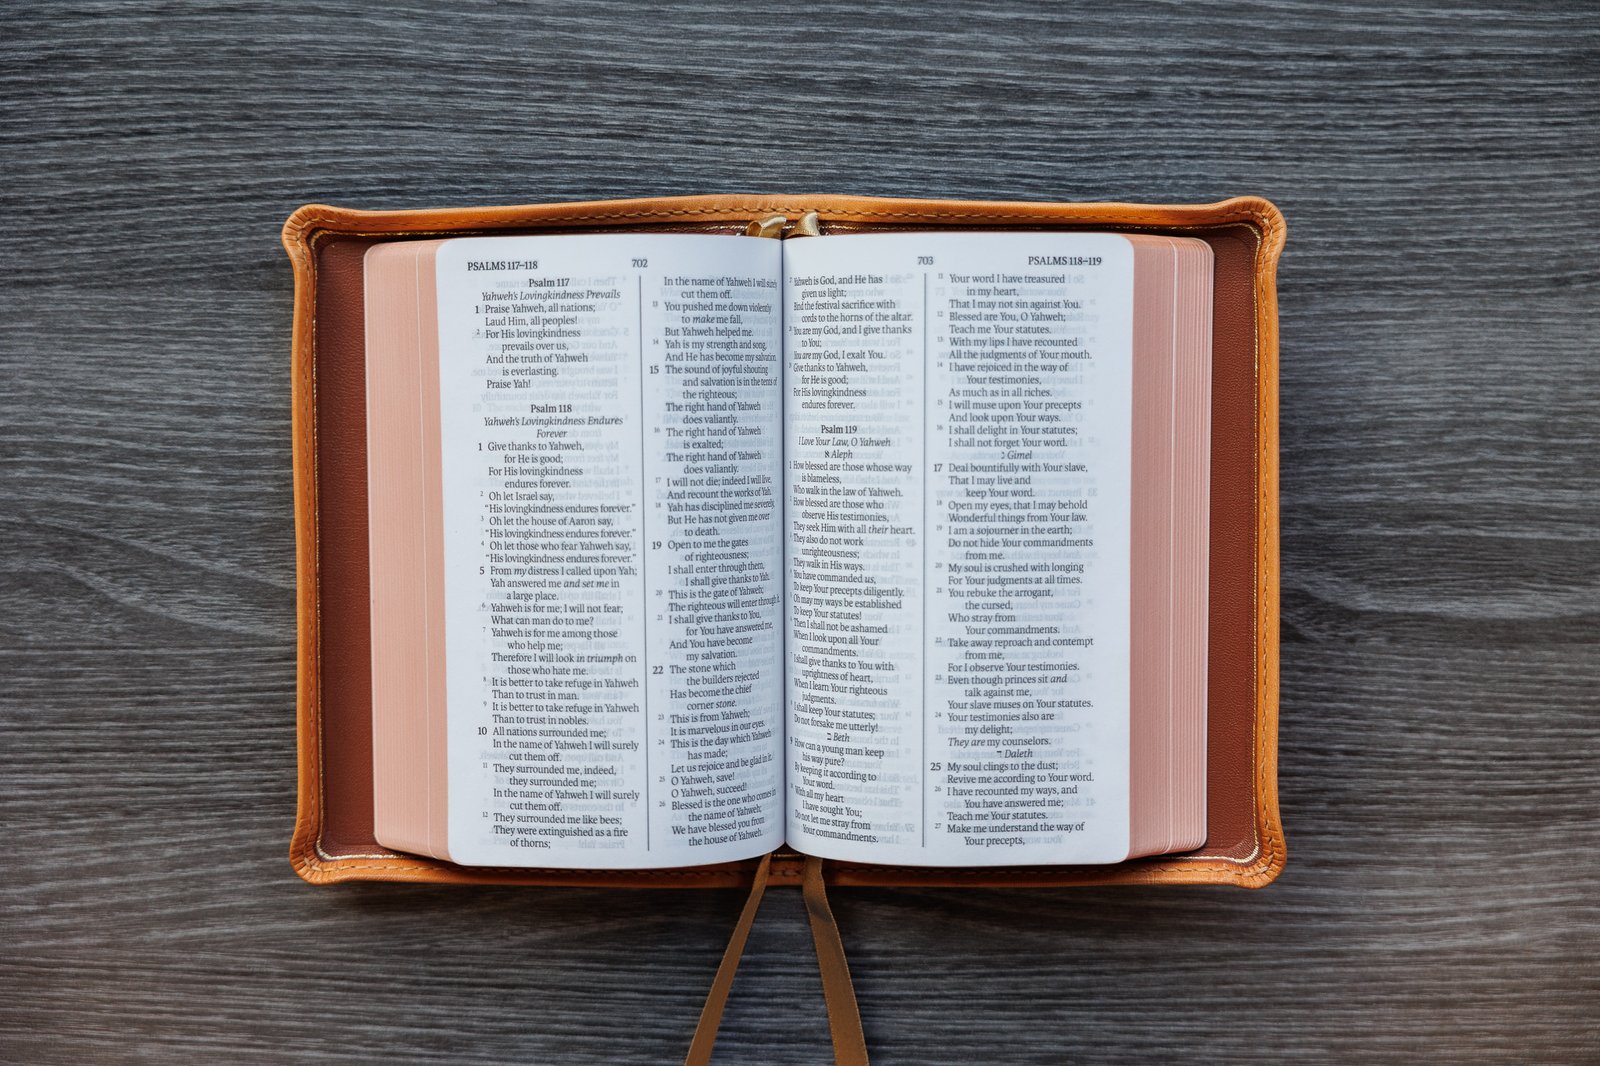 PSALMS 117–118
702
Psalm 117
Yahweh's Lovingkindness Prevails
1 Praise Yahweh, all nations;
Laud Him, all peoples!
2 For His lovingkindness
prevails over us,
And the truth of Yahweh
is everlasting.
Praise Yah!
Psalm 118
Yahweh's Lovingkindness Endures
Forever
1 Give thanks to Yahweh,
for He is good;
For His lovingkindness
endures forever.
2 Oh let Israel say,
“His lovingkindness endures forever.”
3 Oh let the house of Aaron say,
“His lovingkindness endures forever.”
4 Oh let those who fear Yahweh say,
“His lovingkindness endures forever.”
5 From my distress I called upon Yah;
Yah answered me and set me in
a large place.
6 Yahweh is for me; I will not fear;
What can man do to me?
7 Yahweh is for me among those
who help me;
Therefore I will look in triumph on
those who hate me.
8 It is better to take refuge in Yahweh
Than to trust in man.
9 It is better to take refuge in Yahweh
Than to trust in nobles.
10 All nations surrounded me;
In the name of Yahweh I will surely
cut them off.
11 They surrounded me, indeed,
they surrounded me;
In the name of Yahweh I will surely
cut them off.
12 They surrounded me like bees;
They were extinguished as a fire
of thorns;
In the name of Yahweh I will surely
cut them off.
13 You pushed me down violently
to make me fall,
But Yahweh helped me.
14 Yah is my strength and song,
And He has become my salvation.
15 The sound of joyful shouting
and salvation is in the tents of
the righteous;
The right hand of Yahweh
does valiantly.
16 The right hand of Yahweh
is exalted;
The right hand of Yahweh
does valiantly.
17 I will not die; indeed I will live,
And recount the works of Yah.
18 Yah has disciplined me severely,
But He has not given me over
to death.
19 Open to me the gates
of righteousness;
I shall enter through them,
I shall give thanks to Yah.
20 This is the gate of Yahweh;
The righteous will enter through it.
21 I shall give thanks to You,
for You have answered me,
And You have become
my salvation.
22 The stone which
the builders rejected
Has become the chief
corner stone.
23 This is from Yahweh;
It is marvelous in our eyes.
24 This is the day which Yahweh
has made;
Let us rejoice and be glad in it.
25 O Yahweh, save!
O Yahweh, succeed!
26 Blessed is the one who comes in
the name of Yahweh;
We have blessed you from
the house of Yahweh.
703
PSALMS 118–119
Yahweh is God, and He has
given us light;
Bind the festival sacrifice with
cords to the horns of the altar.
You are my God, and I give thanks
to You;
You are my God, I exalt You.
Give thanks to Yahweh,
for He is good;
For His lovingkindness
endures forever.
Psalm 119
I Love Your Law, O Yahweh
א Aleph
1 How blessed are those whose way
is blameless,
Who walk in the law of Yahweh.
How blessed are those who
observe His testimonies,
They seek Him with all their heart.
They also do not work
unrighteousness;
They walk in His ways.
You have commanded us,
To keep Your precepts diligently.
Oh may my ways be established
To keep Your statutes!
Then I shall not be ashamed
When I look upon all Your
commandments.
I shall give thanks to You with
uprightness of heart,
When I learn Your righteous
judgments.
I shall keep Your statutes;
Do not forsake me utterly!
ב Beth
9 How can a young man keep
his way pure?
By keeping it according to
Your word.
With all my heart
I have sought You;
Do not let me stray from
Your commandments.
11 Your word I have treasured
in my heart,
That I may not sin against You.
12 Blessed are You, O Yahweh;
Teach me Your statutes.
13 With my lips I have recounted
All the judgments of Your mouth.
14 I have rejoiced in the way of
Your testimonies,
As much as in all riches.
15 I will muse upon Your precepts
And look upon Your ways.
16 I shall delight in Your statutes;
I shall not forget Your word.
ג Gimel
17 Deal bountifully with Your slave,
That I may live and
keep Your word.
18 Open my eyes, that I may behold
Wonderful things from Your law.
19 I am a sojourner in the earth;
Do not hide Your commandments
from me.
20 My soul is crushed with longing
For Your judgments at all times.
21 You rebuke the arrogant,
the cursed,
Who stray from
Your commandments.
22 Take away reproach and contempt
from me,
For I observe Your testimonies.
23 Even though princes sit and
talk against me,
Your slave muses on Your statutes.
24 Your testimonies also are
my delight;
They are my counselors.
ד Daleth
25 My soul clings to the dust;
Revive me according to Your word.
26 I have recounted my ways, and
You have answered me;
Teach me Your statutes.
27 Make me understand the way of
Your precepts,